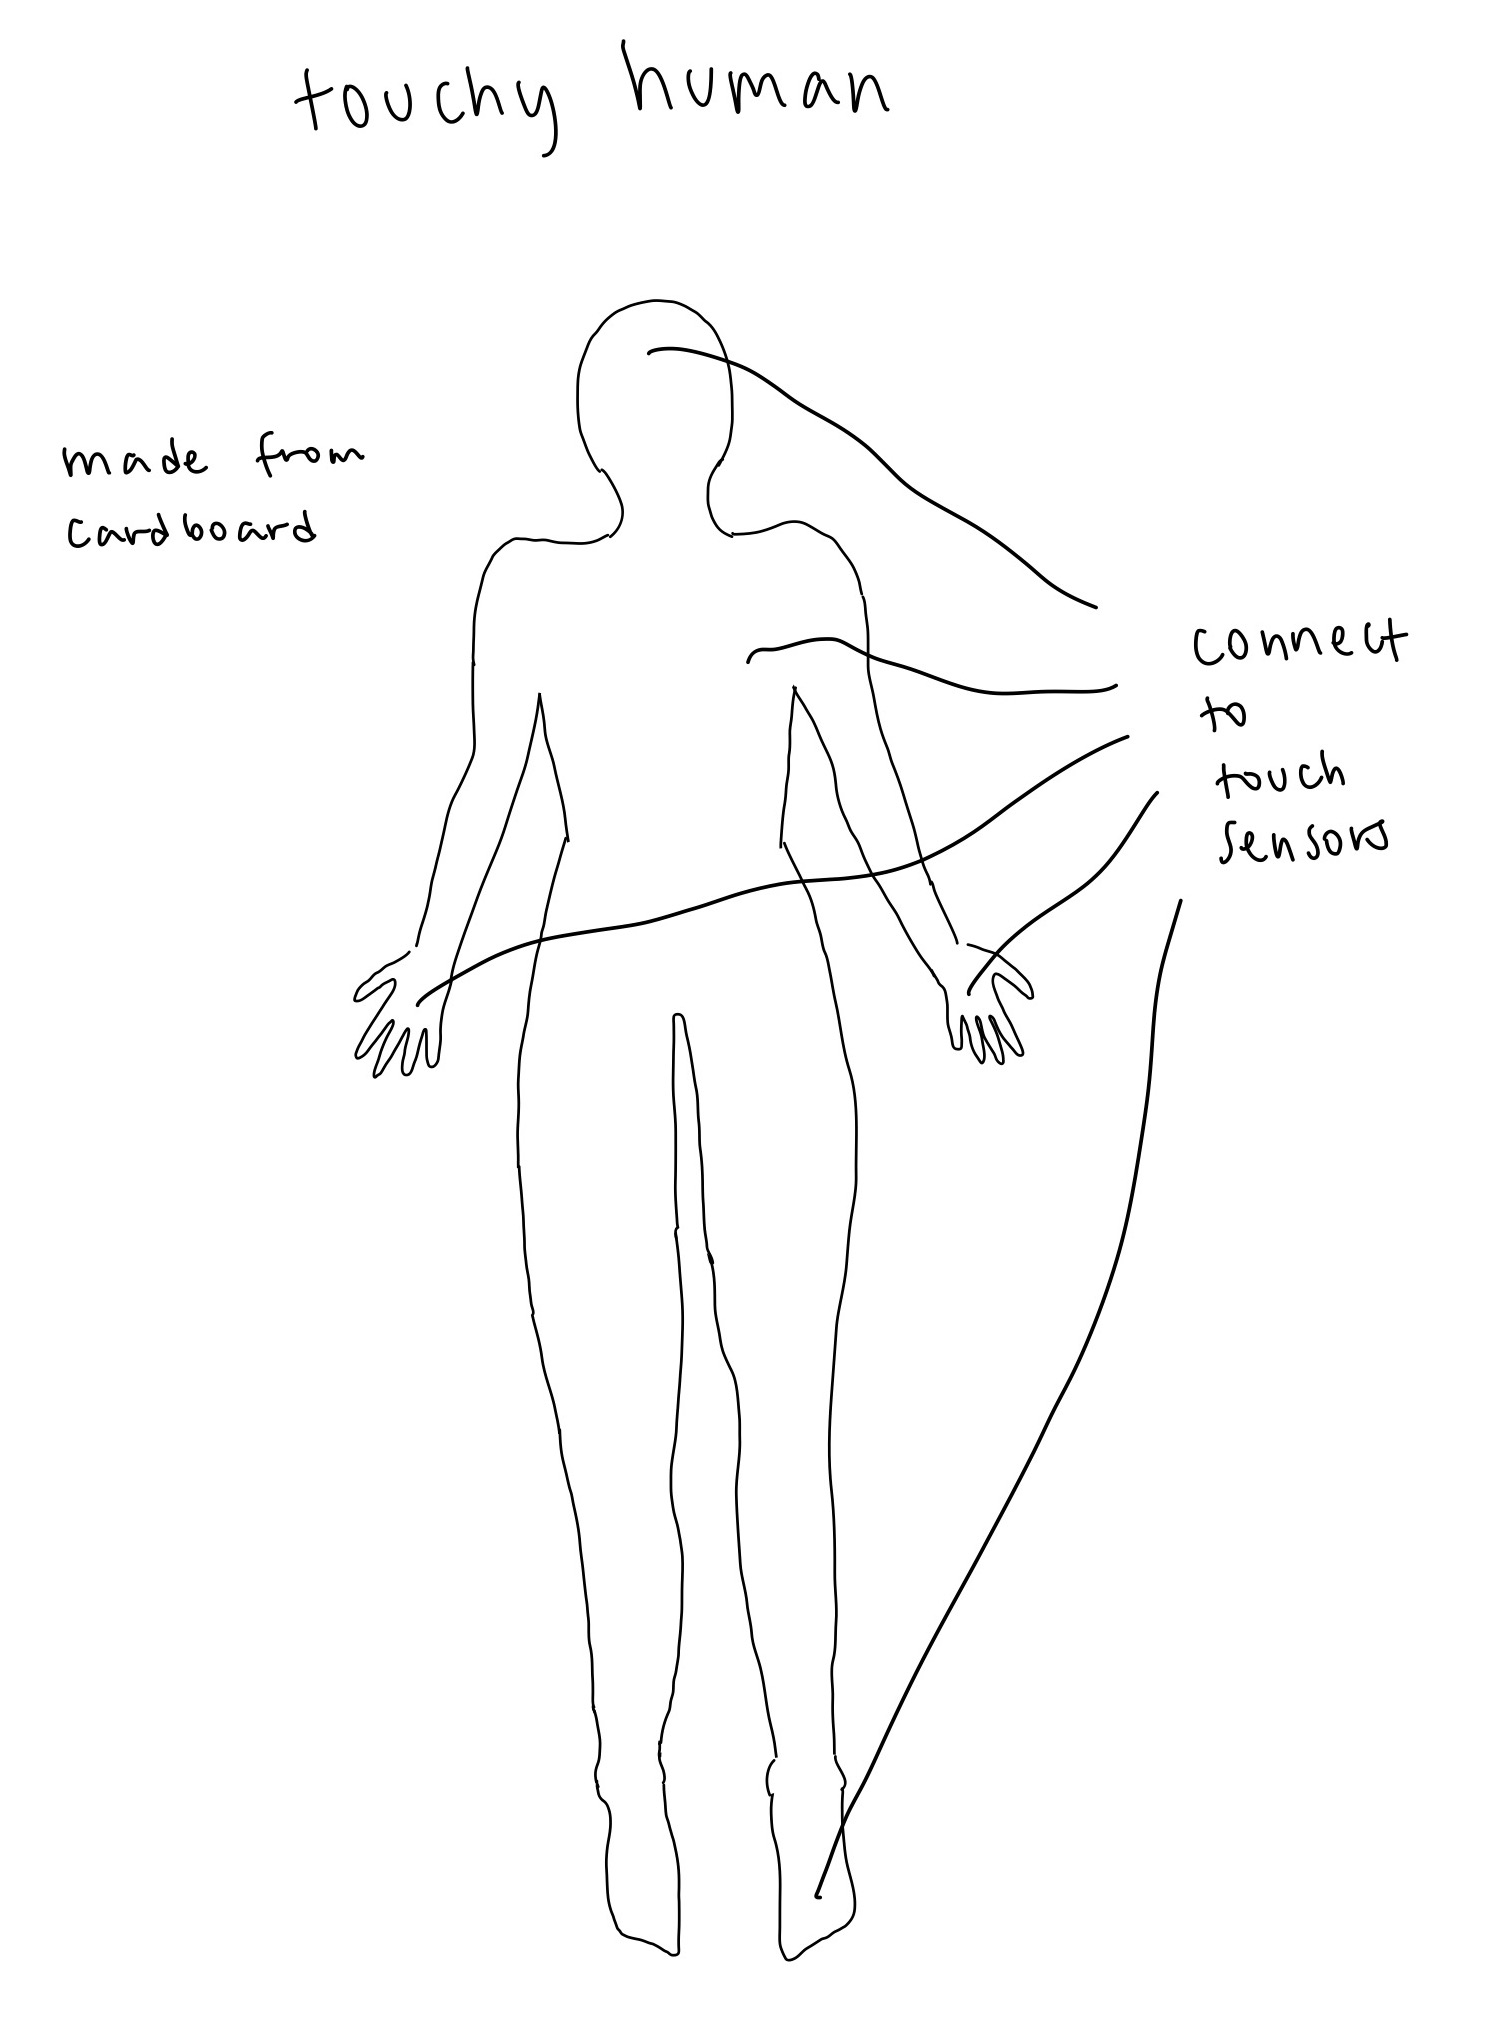 touchy human
made from
cardboard
connect
to
touch
sensors